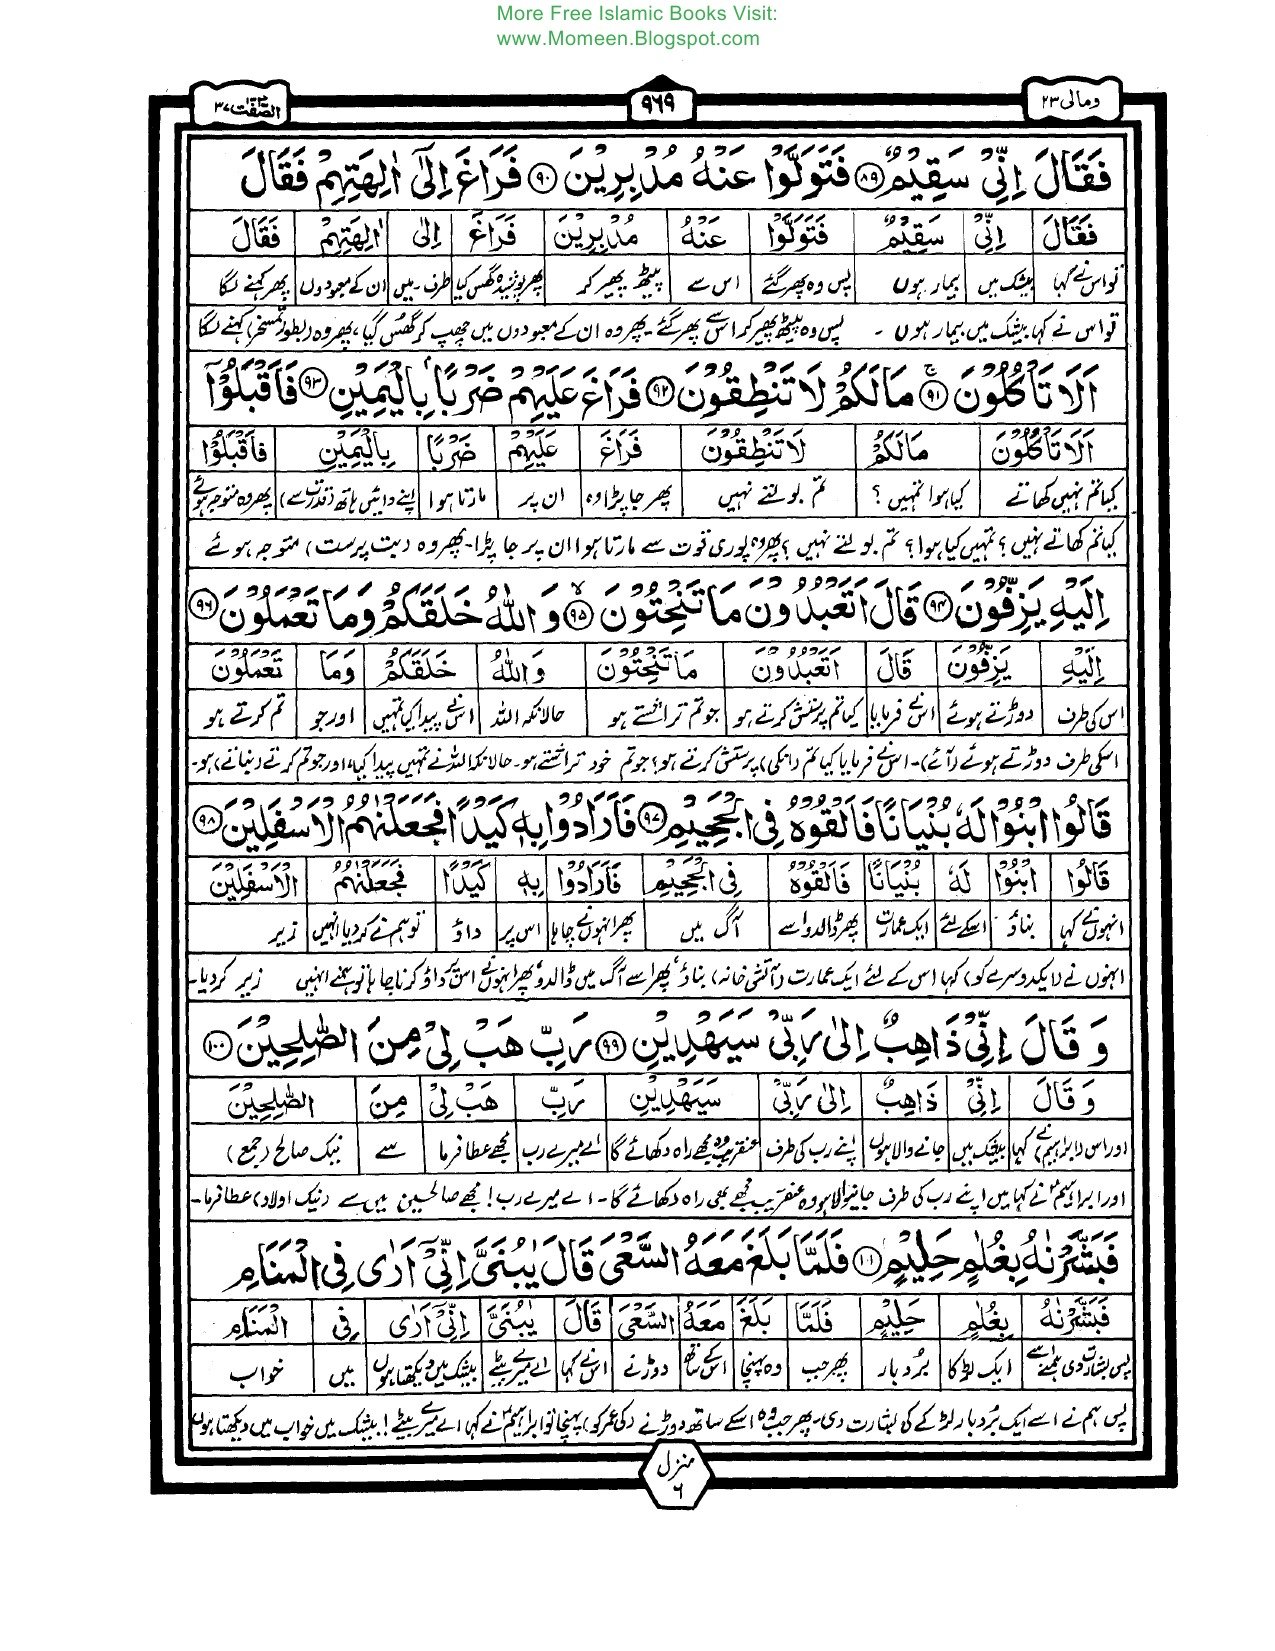 More Free Islamic Books Visit:
www.Momeen.Blogspot.com
ومالی ۲۳
۹۶۹
الصّٰفّٰت ۳۷
فَقَالَ اِنِّیْ سَقِیْمٌ ۸۹ فَتَوَلَّوْا عَنْهُ مُدْبِرِیْنَ ۹۰ فَرَاغَ اِلٰۤی اٰلِهَتِهِمْ فَقَالَ
فَقَالَ اِنِّیْ سَقِیْمٌ فَتَوَلَّوْا عَنْهُ مُدْبِرِیْنَ فَرَاغَ اِلٰۤی اٰلِهَتِهِمْ فَقَالَ
تو اس نے کہا بیشک میں بیمار ہوں پس وہ پھر گئے اس سے پیٹھ پھیر کر پھر پوشیدہ گھس گیا طرف۔میں ان کے معبودوں پھر کہنے لگا
تو اس نے کہا بیشک میں بیمار ہوں ۔ پس وہ پیٹھ پھیر کر اس سے پھر گئے۔ پھر وہ ان کے معبودوں میں چھپ کر گھس گیا، پھر وہ (بطور تمسخر) کہنے لگا
اَلَا تَاْكُلُوْنَ ۹۱ مَا لَكُمْ لَا تَنْطِقُوْنَ ۹۲ فَرَاغَ عَلَیْهِمْ ضَرْبًۢا بِالْیَمِیْنِ ۹۳ فَاَقْبَلُوْۤا
اَلَا تَاْكُلُوْنَ مَا لَكُمْ لَا تَنْطِقُوْنَ فَرَاغَ عَلَیْهِمْ ضَرْبًا بِالْیَمِیْنِ فَاَقْبَلُوْۤا
کیا تم نہیں کھاتے کیا ہوا تمہیں؟ تم بولتے نہیں پھر جا پڑا وہ ان پر مارتا ہوا اپنے دائیں ہاتھ (قدرت سے) پھر وہ متوجہ ہوئے
کیا تم کھاتے نہیں؟ تمہیں کیا ہوا؟ تم بولتے نہیں؟ پھر وہ پوری قوت سے مارتا ہوا ان پر جا پڑا۔ پھر وہ (بت پرست) متوجہ ہوئے
اِلَیْهِ یَزِفُّوْنَ ۹۴ قَالَ اَتَعْبُدُوْنَ مَا تَنْحِتُوْنَ ۹۵ وَ اللّٰهُ خَلَقَكُمْ وَ مَا تَعْمَلُوْنَ ۹۶
اِلَیْهِ یَزِفُّوْنَ قَالَ اَتَعْبُدُوْنَ مَا تَنْحِتُوْنَ وَ اللّٰهُ خَلَقَكُمْ وَمَا تَعْمَلُوْنَ
اس کی طرف دوڑتے ہوئے اس نے فرمایا کیا تم پرستش کرتے ہو جو تم تراشتے ہو حالانکہ اللہ اس نے پیدا کیا تمہیں اور جو تم کرتے ہو
اسکی طرف دوڑتے ہوئے (آئے)۔ اس نے فرمایا کیا تم (انکی) پرستش کرتے ہو؟ جو تم خود تراشتے ہو۔ حالانکہ اللہ نے تمہیں پیدا کیا، اور جو تم کرتے (بناتے) ہو۔
قَالُوا ابْنُوْا لَهٗ بُنْیَانًا فَاَلْقُوْهُ فِی الْجَحِیْمِ ۹۷ فَاَرَادُوْا بِهٖ كَیْدًا فَجَعَلْنٰهُمُ الْاَسْفَلِیْنَ ۹۸
قَالُوا ابْنُوْا لَهٗ بُنْیَانًا فَاَلْقُوْهُ فِی الْجَحِیْمِ فَاَرَادُوْا بِهٖ كَیْدًا فَجَعَلْنٰهُمُ الْاَسْفَلِیْنَ
انہوں نے کہا بناؤ اسکے لئے ایک عمارت پھر ڈالدو اسے آگ میں پھر انہوں نے چاہا اس پر داؤ تو ہم نے کر دیا انہیں زیر
انہوں نے (ایک دوسرے کو) کہا اس کے لئے ایک عمارت (آتشی خانہ) بناؤ، پھر اسے آگ میں ڈالدو، پھر انہوں نے اس پر داؤ کرنا چاہا تو ہمنے انہیں زیر کر دیا۔
وَ قَالَ اِنِّیْ ذَاهِبٌ اِلٰی رَبِّیْ سَیَهْدِیْنِ ۹۹ رَبِّ هَبْ لِیْ مِنَ الصّٰلِحِیْنَ ۱۰۰
وَ قَالَ اِنِّیْ ذَاهِبٌ اِلٰی رَبِّیْ سَیَهْدِیْنِ رَبِّ هَبْ لِیْ مِنَ الصّٰلِحِیْنَ
اور اس (ابراہیمؑ) نے کہا بیشک میں جانے والا ہوں اپنے رب کی طرف عنقریب وہ مجھے راہ دکھائے گا اے میرے رب مجھے عطا فرما سے نیک صالح (جمع)
اور ابراہیمؑ نے کہا میں اپنے رب کی طرف جانیوالا ہوں وہ عنقریب مجھے بھی راہ دکھائے گا۔ اے میرے رب! مجھے صالحین میں سے (نیک اولاد) عطا فرما۔
فَبَشَّرْنٰهُ بِغُلٰمٍ حَلِیْمٍ ۱۰۱ فَلَمَّا بَلَغَ مَعَهُ السَّعْیَ قَالَ یٰبُنَیَّ اِنِّیْۤ اَرٰی فِی الْمَنَامِ
فَبَشَّرْنٰهُ بِغُلٰمٍ حَلِیْمٍ فَلَمَّا بَلَغَ مَعَهُ السَّعْیَ قَالَ یٰبُنَیَّ اِنِّیْۤ اَرٰی فِی الْمَنَامِ
پس بشارت دی ہمنے اسے ایک لڑکا بُردبار پھر جب وہ پہنچا اس کے ساتھ دوڑنے اس نے کہا اے میرے بیٹے بیشک میں دیکھتا ہوں میں خواب
پس ہم نے اسے ایک بُردبار لڑکے کی بشارت دی۔ پھر جب وہ اسکے ساتھ دوڑنے (کی عمر کو) پہنچا تو ابراہیمؑ نے کہا اے میرے بیٹے! بیشک میں خواب میں دیکھتا ہوں
منزل
۶